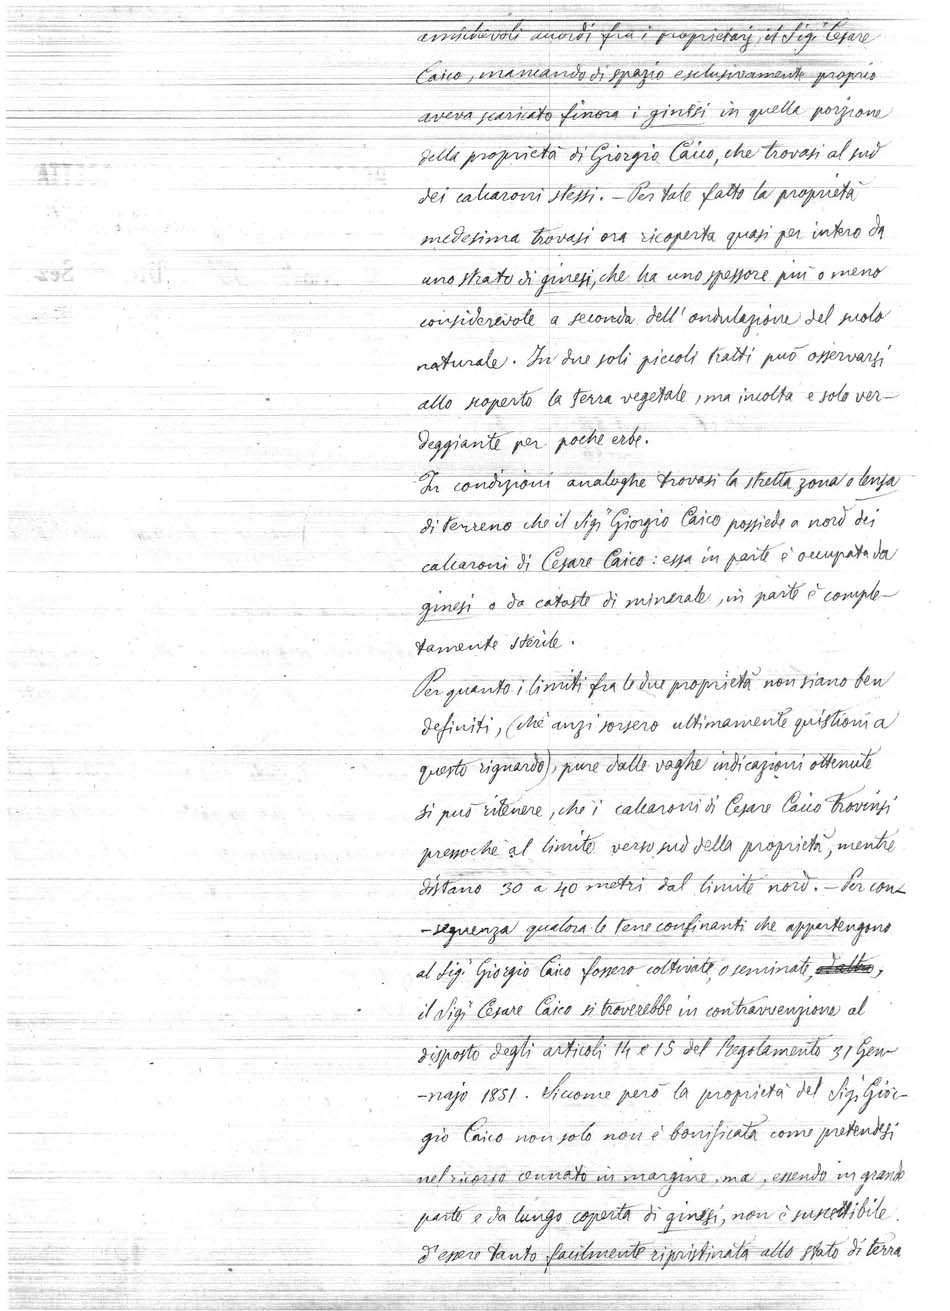 amichevoli accordi fra i proprietarj, il Sigr Cesare
Caico, mancando di spazio esclusivamente proprio
aveva scaricato finora i ginisi in quella porzione
della proprietà di Giorgio Caico, che trovasi al sud
dei calcaroni stessi. — Per tale fatto la proprietà
medesima trovasi ora ricoperta quasi per intero da
uno strato di ginesi, che ha uno spessore più o meno
considerevole a seconda dell'ondulazione del suolo
naturale. In due soli piccoli tratti può osservarsi
allo scoperto la terra vegetale, ma incolta e solo ver-
deggiante per poche erbe.
In condizioni analoghe trovasi la stretta zona o lenza
di terreno che il Sigr Giorgio Caico possiede a nord dei
calcaroni di Cesare Caico: essa in parte è occupata da
ginesi o da cataste di minerale, in parte è comple-
tamente sterile.
Per quanto i limiti fra le due proprietà non siano ben
definiti, (chè anzi sorsero ultimamente quistioni a
questo riguardo), pure dalle vaghe indicazioni ottenute
si può ritenere, che i calcaroni di Cesare Caico trovinsi
pressochè al limite verso sud della proprietà, mentre
distano 30 a 40 metri dal limite nord. — Per con-
-seguenza qualora le terre confinanti che appartengono
al Sigr Giorgio Caico fossero coltivate, o seminate,
il Sigr Cesare Caico si troverebbe in contravvenzione al
disposto degli articoli 14 e 15 del Regolamento 31 Gen-
-najo 1851. Siccome però la proprietà del Sigr Gior-
gio Caico non solo non è bonificata come pretendesi
nel ricorso cennato in margine, ma, essendo in grande
parte e da lungo coperta di ginesi, non è suscettibile
d'essere tanto facilmente ripristinata allo stato di terra